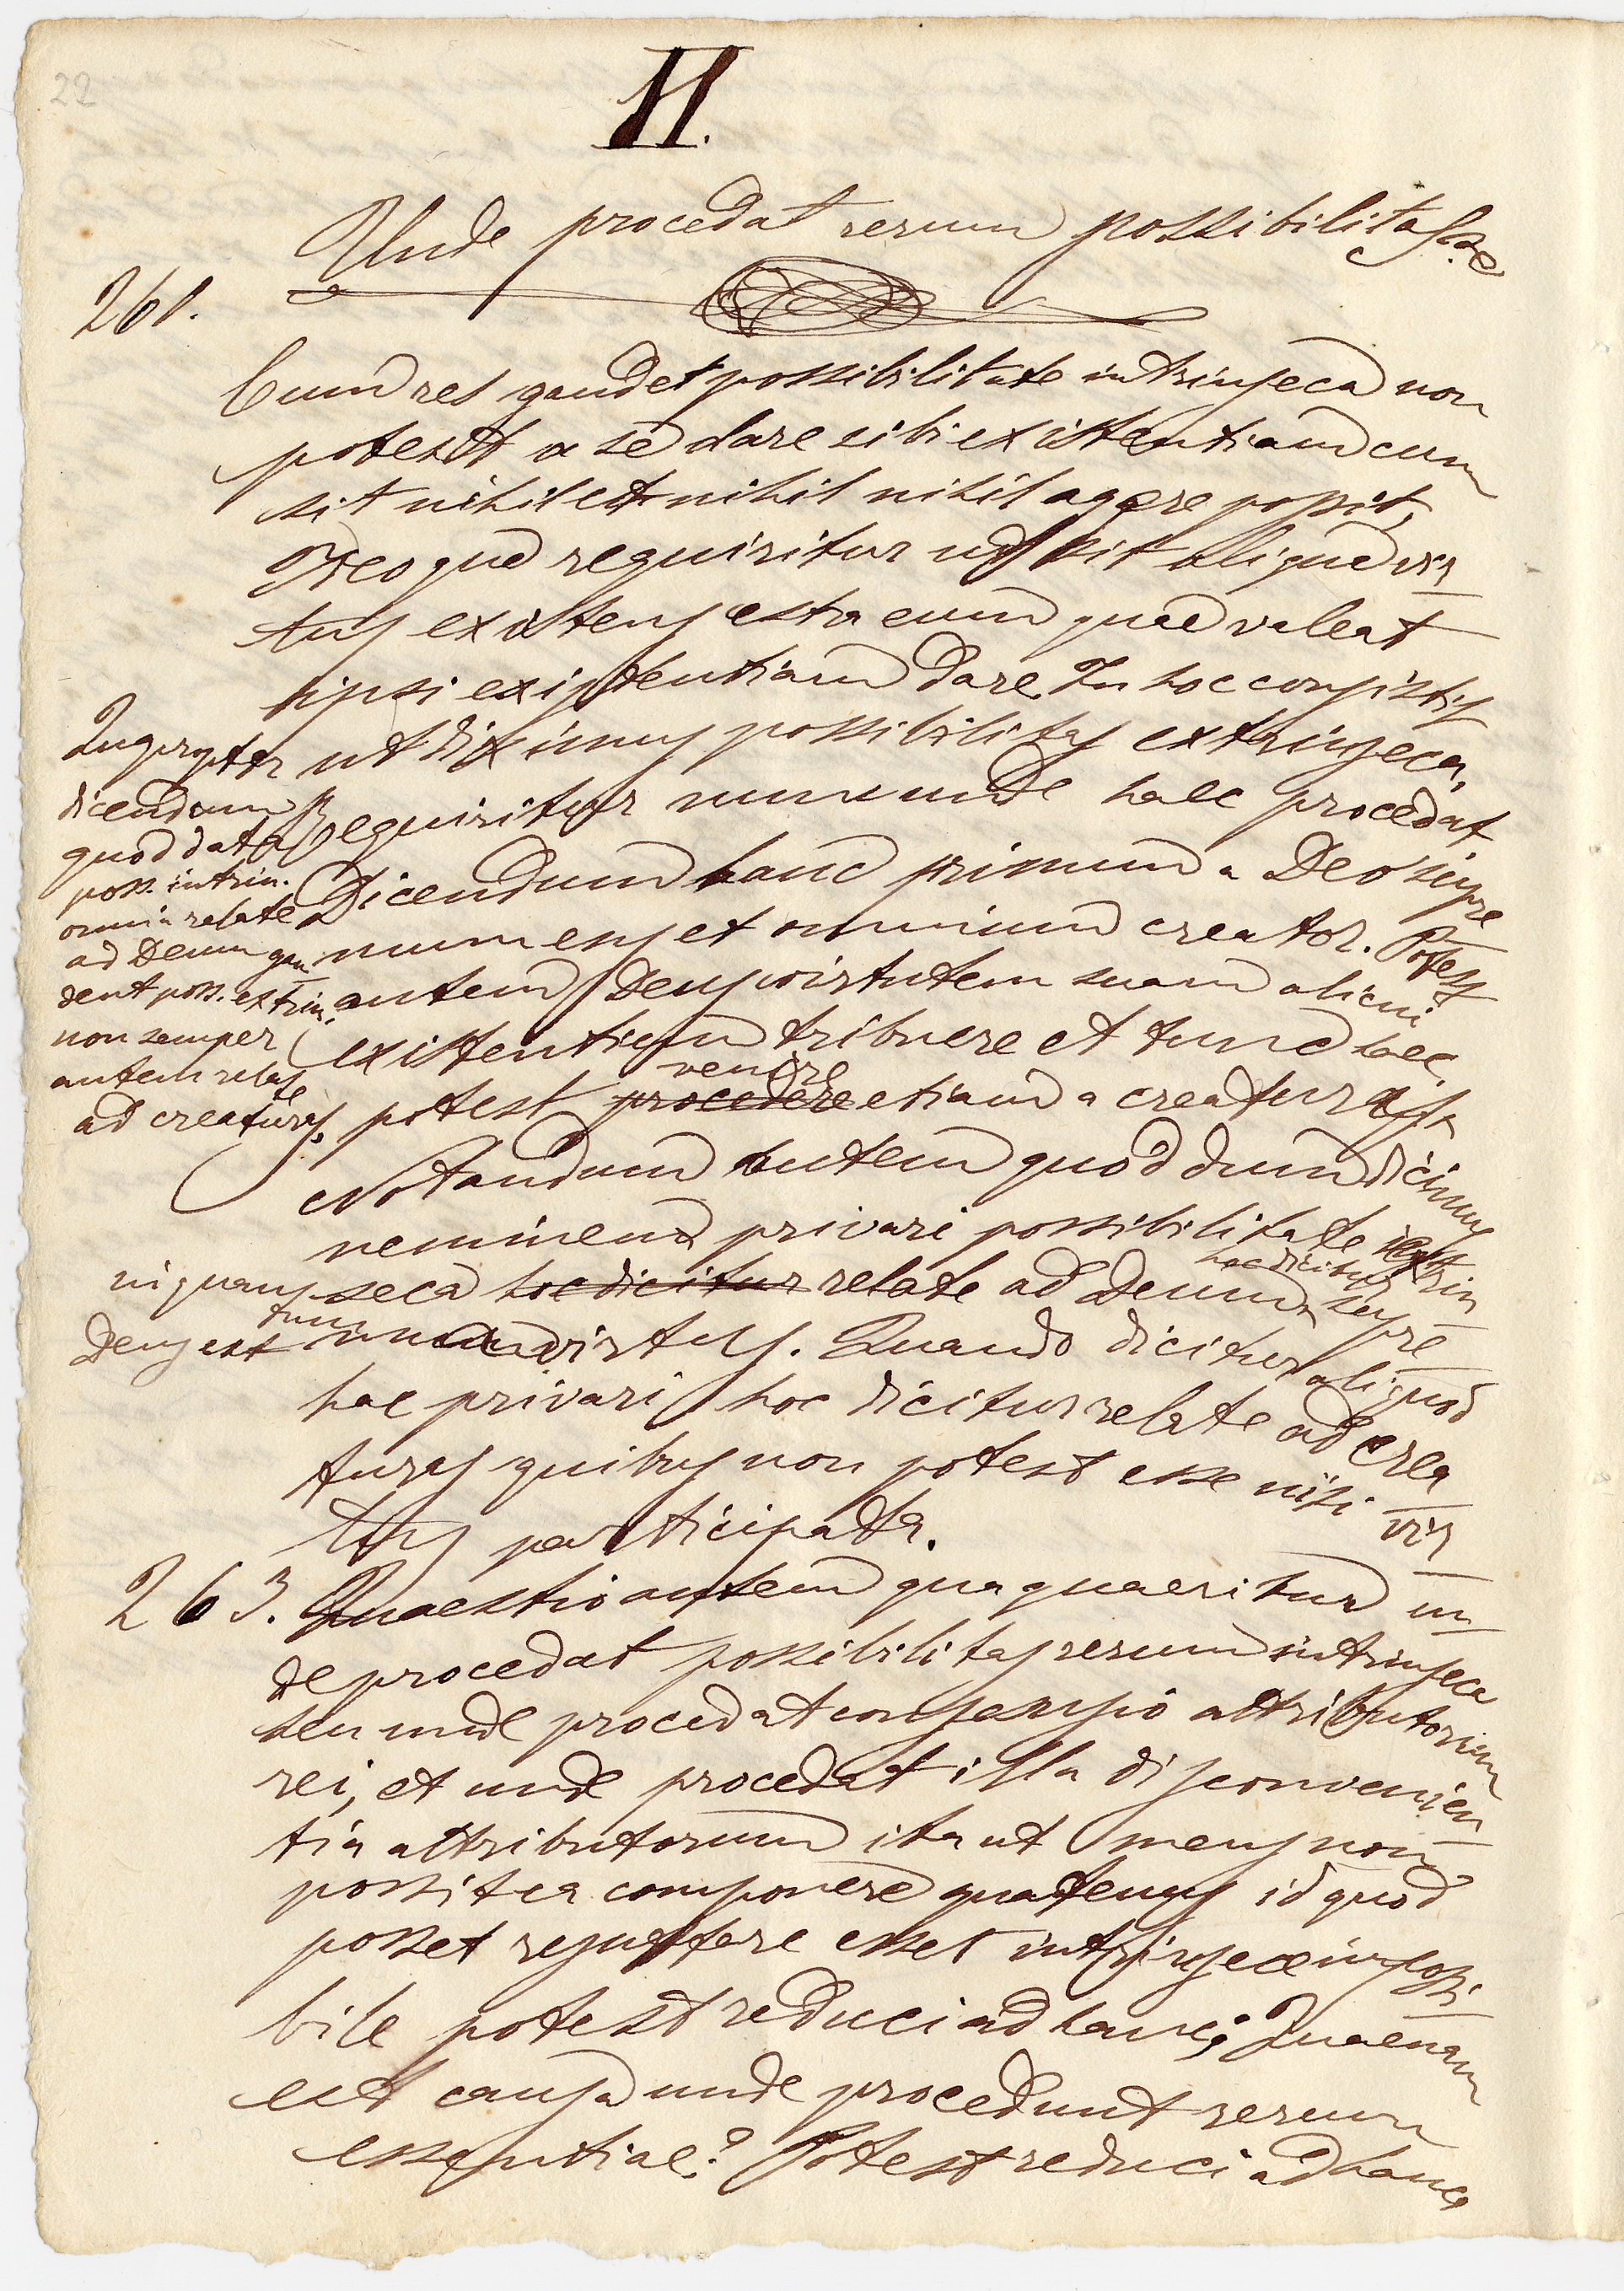 22
II.
Unde procedat rerum possibilitas?
261.
Cum res gaudet possibilitate intrinseca non
potest a se dare sibi existentiam cum
sit nihil et nihil nihil agere possit,
Ideoque requiritur ut sit aliqua vir
tus existens extra eum quae valeat
ipsi existentiam dare. In hoc consistit
ut diximus possibilitas extrinseca,
requiritur nunc unde haec procedat
Dicendum hanc primum a Deo supre
mum ens et omnium creator. Potest
autem Deus virtutem suam alicui
existentiam tribuere et tunc haec
venire
potest procedere etiam a creaturis
Quapropter
dicendum
quod data
poss. intrin.
omnia relate
ad Deum gau
dent poss. extrin.
non semper
autem relate
ad creaturas.
Notandum autem quod dum dicimus
neminem privari possibilitate extrin
hoc dicitur
seca hoc dicitur relate ad Deum supre
in quantum
Deus est
mam virtus. Quando dicitur aliquod
hac privari hoc dicitur relate ad crea
turas quibus non potest esse nisi vir
tus participata.
263. Quaestio autem qua quaeritur un
de procedat possibilitas rerum intrinseca
seu unde procedat consensio attributorum
rei, et unde procedat illa disconvenien
tia attributorum ita ut mens non
possit ea componere quatenus id quod
posset resultare esset intrinsece impossi
bile potest reduci ad hanc; Quaenam
est causa unde procedunt rerum
essentiae? Potest reduci ad hanc